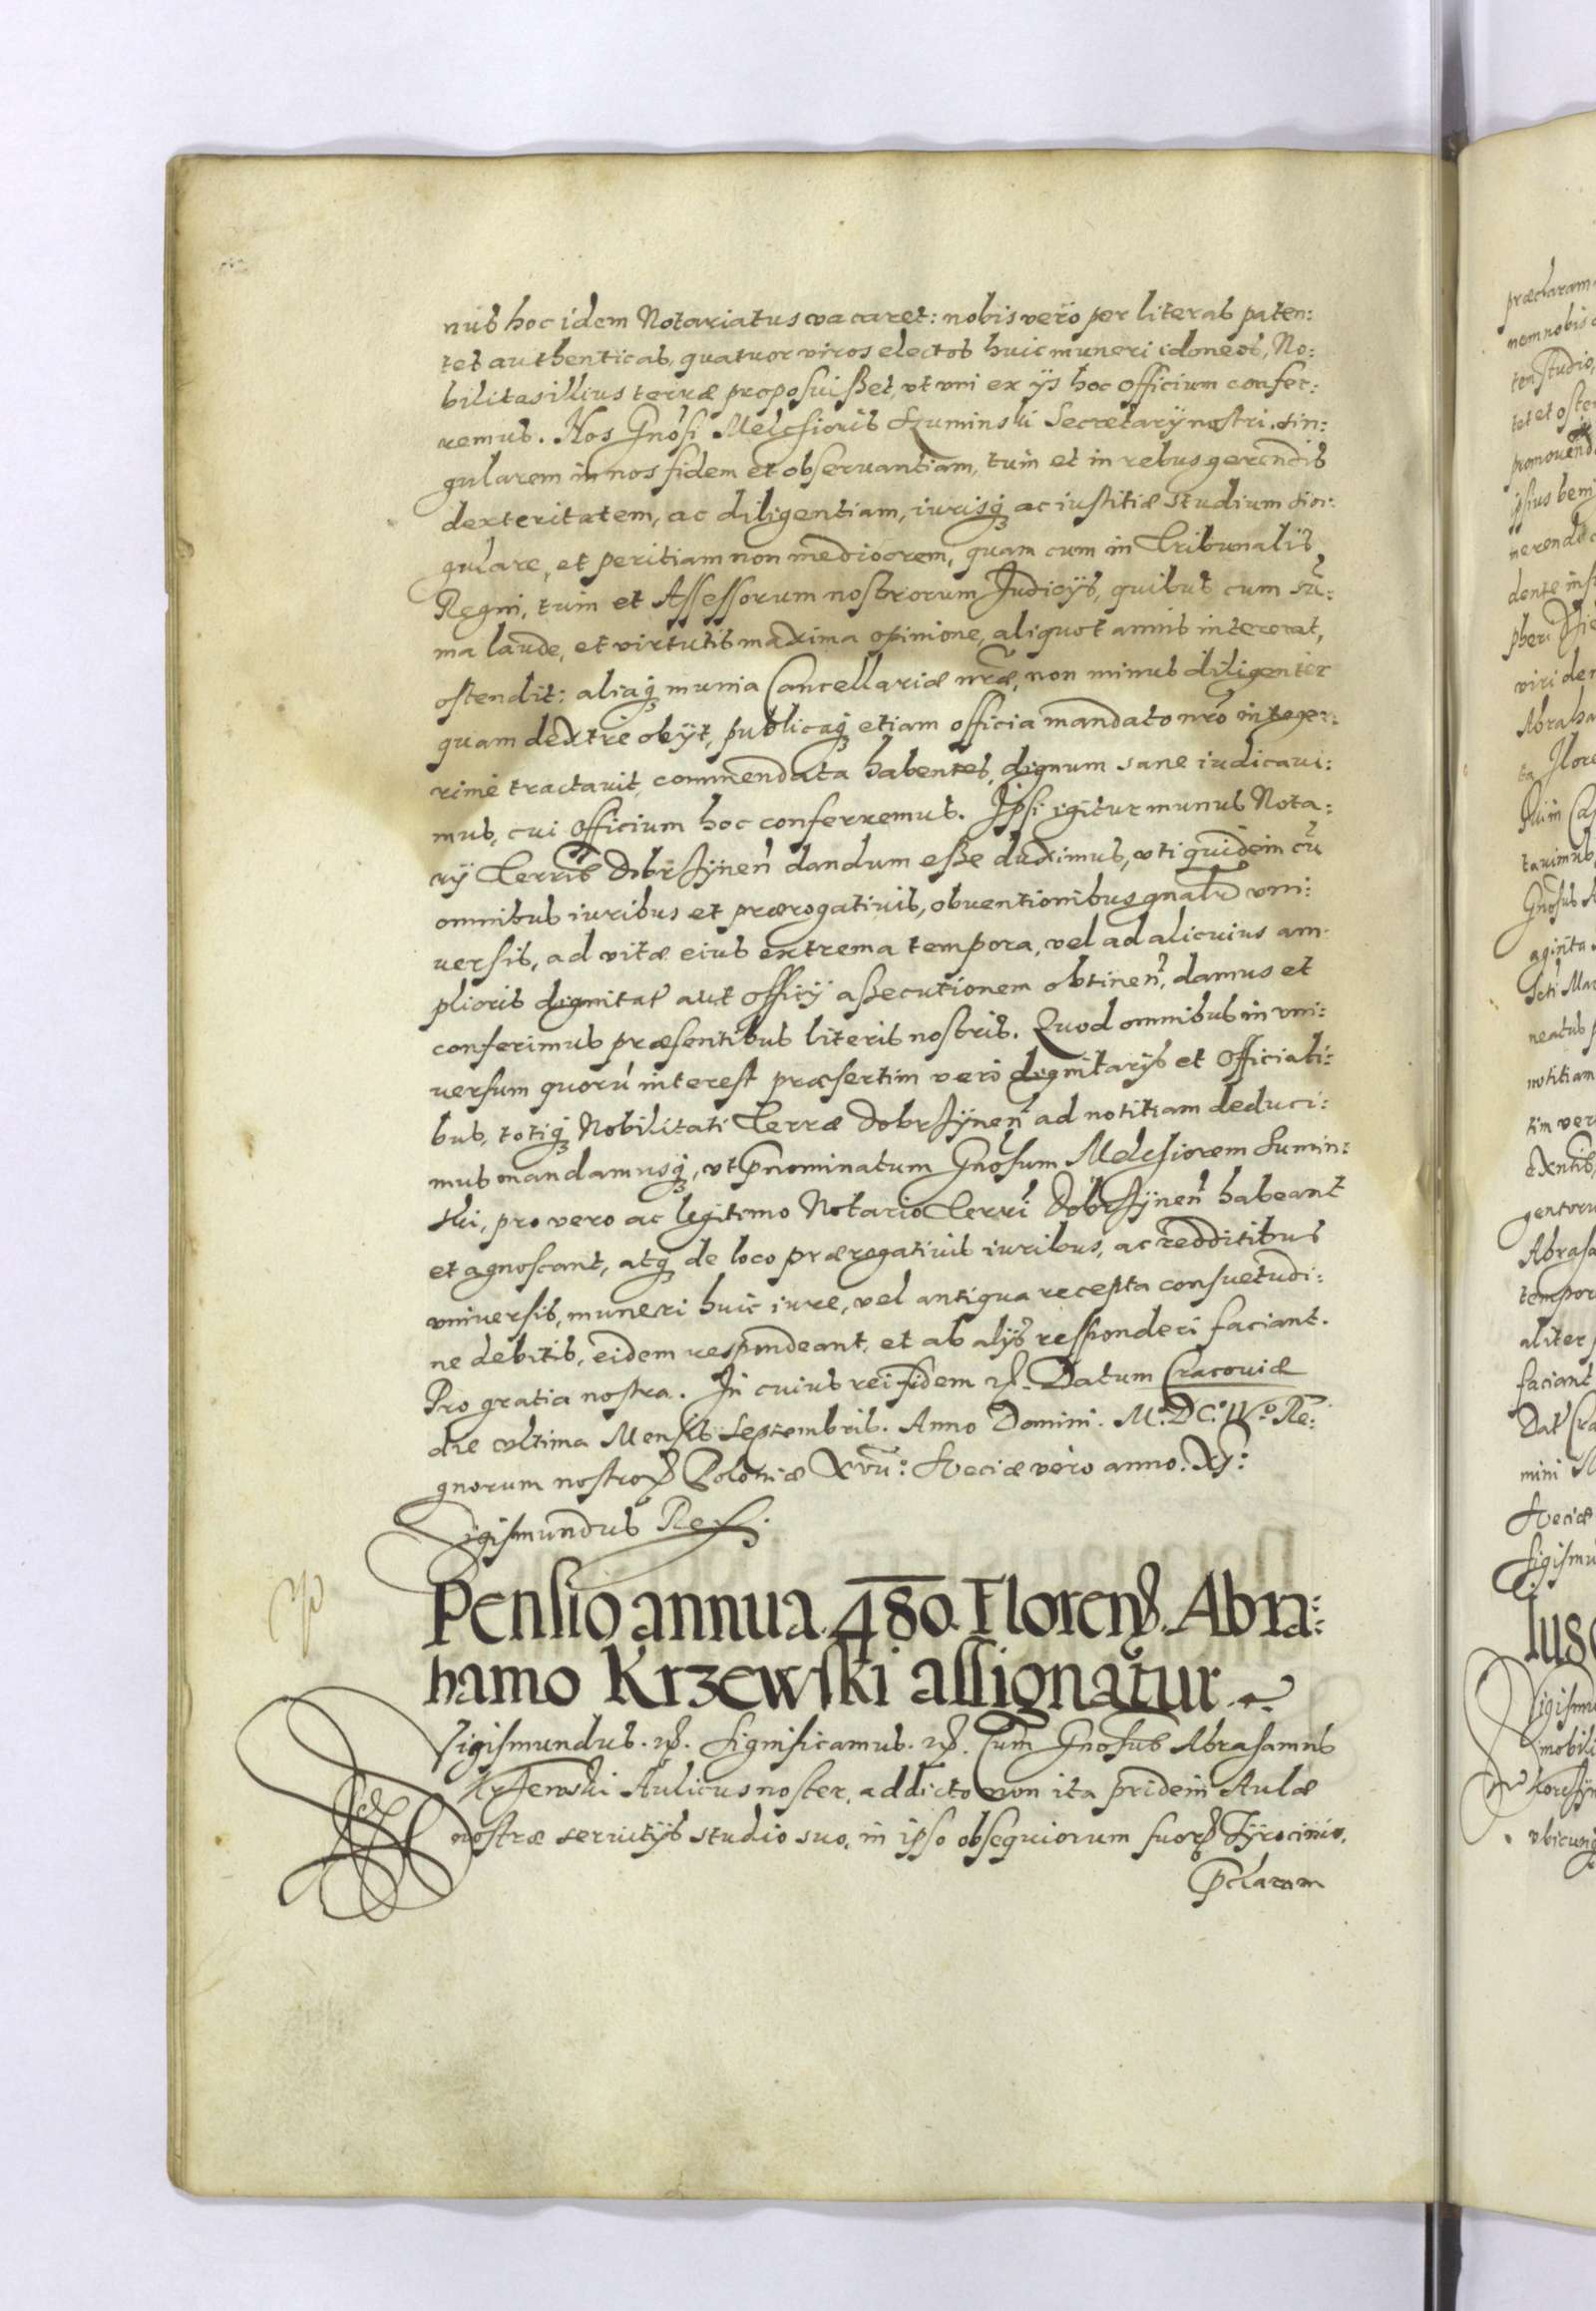 nus hoc idem Notariatus vacaret: nobis vero per literas paten:
tes authenticas, quatuor viros electos huic muneri idoneos, No:
bilitas illius terræ proposuißet, vt vni ex ijs hoc officium confer:
remus. Nos Gnosi Melchioris Szuminski Secretarij nostri, sin:
gularem in nos fidem et obseruantiam, tum et in rebus gerendis
dexteritatem, ac diligentiam, iurisq3 ac iustitiæ studium sin:
gulare, et peritiam non mediocrem, quam cum in Tribunalis
Regni, tum et Assessorum nostrorum Judicijs, quibus cum sū:
ma laude, et virtutis maxima opinione, aliquot annis intererat,
ostendit: aliaq3 munia Cancellariæ nræ, non minus diligenter
quam dextre obijt, publicaq3 etiam officia mandato nro integer:
rime tractauit, commendata habentes, dignum sane iudicaui:
mus, cui officium hoc conferremus. Ipsi igitur munus Nota:
rij Terris Dobrzynen dandum eße duximus, vti quidem cū
omnibus iuribus et prærogatiuis, obuentionibus gnalr vni:
uersis, ad vitæ eius extrema tempora, vel ad alicuius am
plioris dignitat aut officij aßecutionem obtinen, damus et
conferimus præsentibus literis nostris. Quod omnibus in vni:
uersum quorū interest præsertim vero dignitarijs et Officiali:
bus, totiq3 Nobilitati Terræ Dobrzynen ad notitiam deduci:
mus mandamusq3, vt pnominatum Gnosum Melchiorem Sumin:
ski, pro vero ac legitimo Notario Terri Dobrzynen habeant
et agnoscant, atq3 de loco prærogatiuis iuribus, ac redditibus
vniuersis, muneri huic iure, vel antiqua recepta consuetudi:
ne debitis, eidem respondeant, et ab alijs responderi faciant.
Pro gratia nostra. In cuius rei fidem &. Datum Cracouiæ
die vltima Mensis Septembris. Anno Domini. M. DC. IV.o Re:
gnorum nostror Poloniæ XVII: Sueciæ vero anno. XI:
Sigismundus Rex.
Pensio annua. 480. Floren. Abra:
hamo Krzewski assignatur
Sigismundus. &. Significamus. &. Cum Gnosus Abrahamus
Krzewski Aulicus noster, addicto non ita pridem Aulæ
nostræ seruitijs studio suo, in ipso obsequiorum suor Tyrocinio,
pclaram